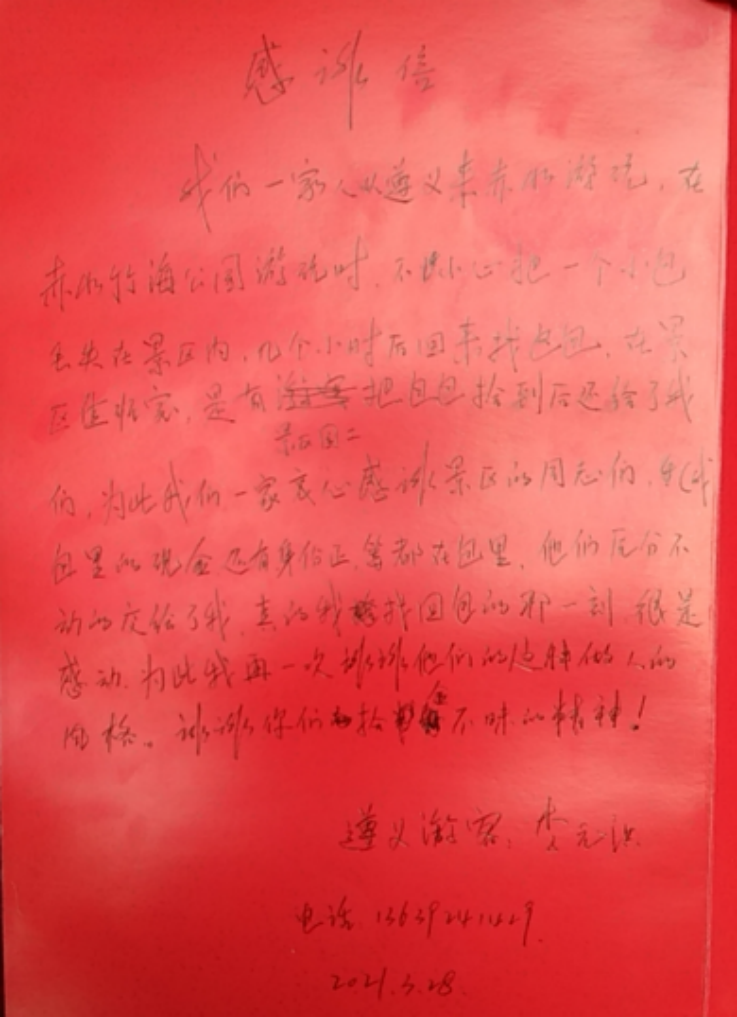 感谢信
我们一家人从遵义来赤水游玩,在
赤水竹海公园游玩时,不小心把一个小包
丢失在景区内,几个小时后回来找包,在景
区,是有把包包拾到后还给了我
景区员工
们,为此我们一家衷心感谢景区的同志们,我
包里的现金还有身份证等都在包里,他们分不
动的交给了我,真的我找回包的那一刻很是
感动,为此我再一次谢谢他们的这种做人的
风格。谢谢你们拾金不昧的精神!
遵义游客:李元洪
电话
2021.5.28.